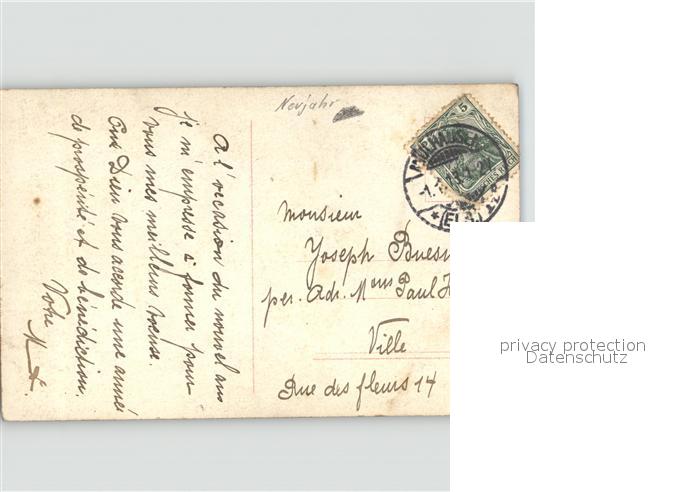 Neujahr
A l'occasion du nouvel ans
je m'empresse à former pour
vous mes meilleurs voeux.
Que Dieu vous acorde une année
de prospérité et de bénédiction.
Votre
5
(ELS.)
Monsieur
Joseph
per. Adr. Mons Paul
Ville
Rue des fleurs 14
privacy protection
Datenschutz